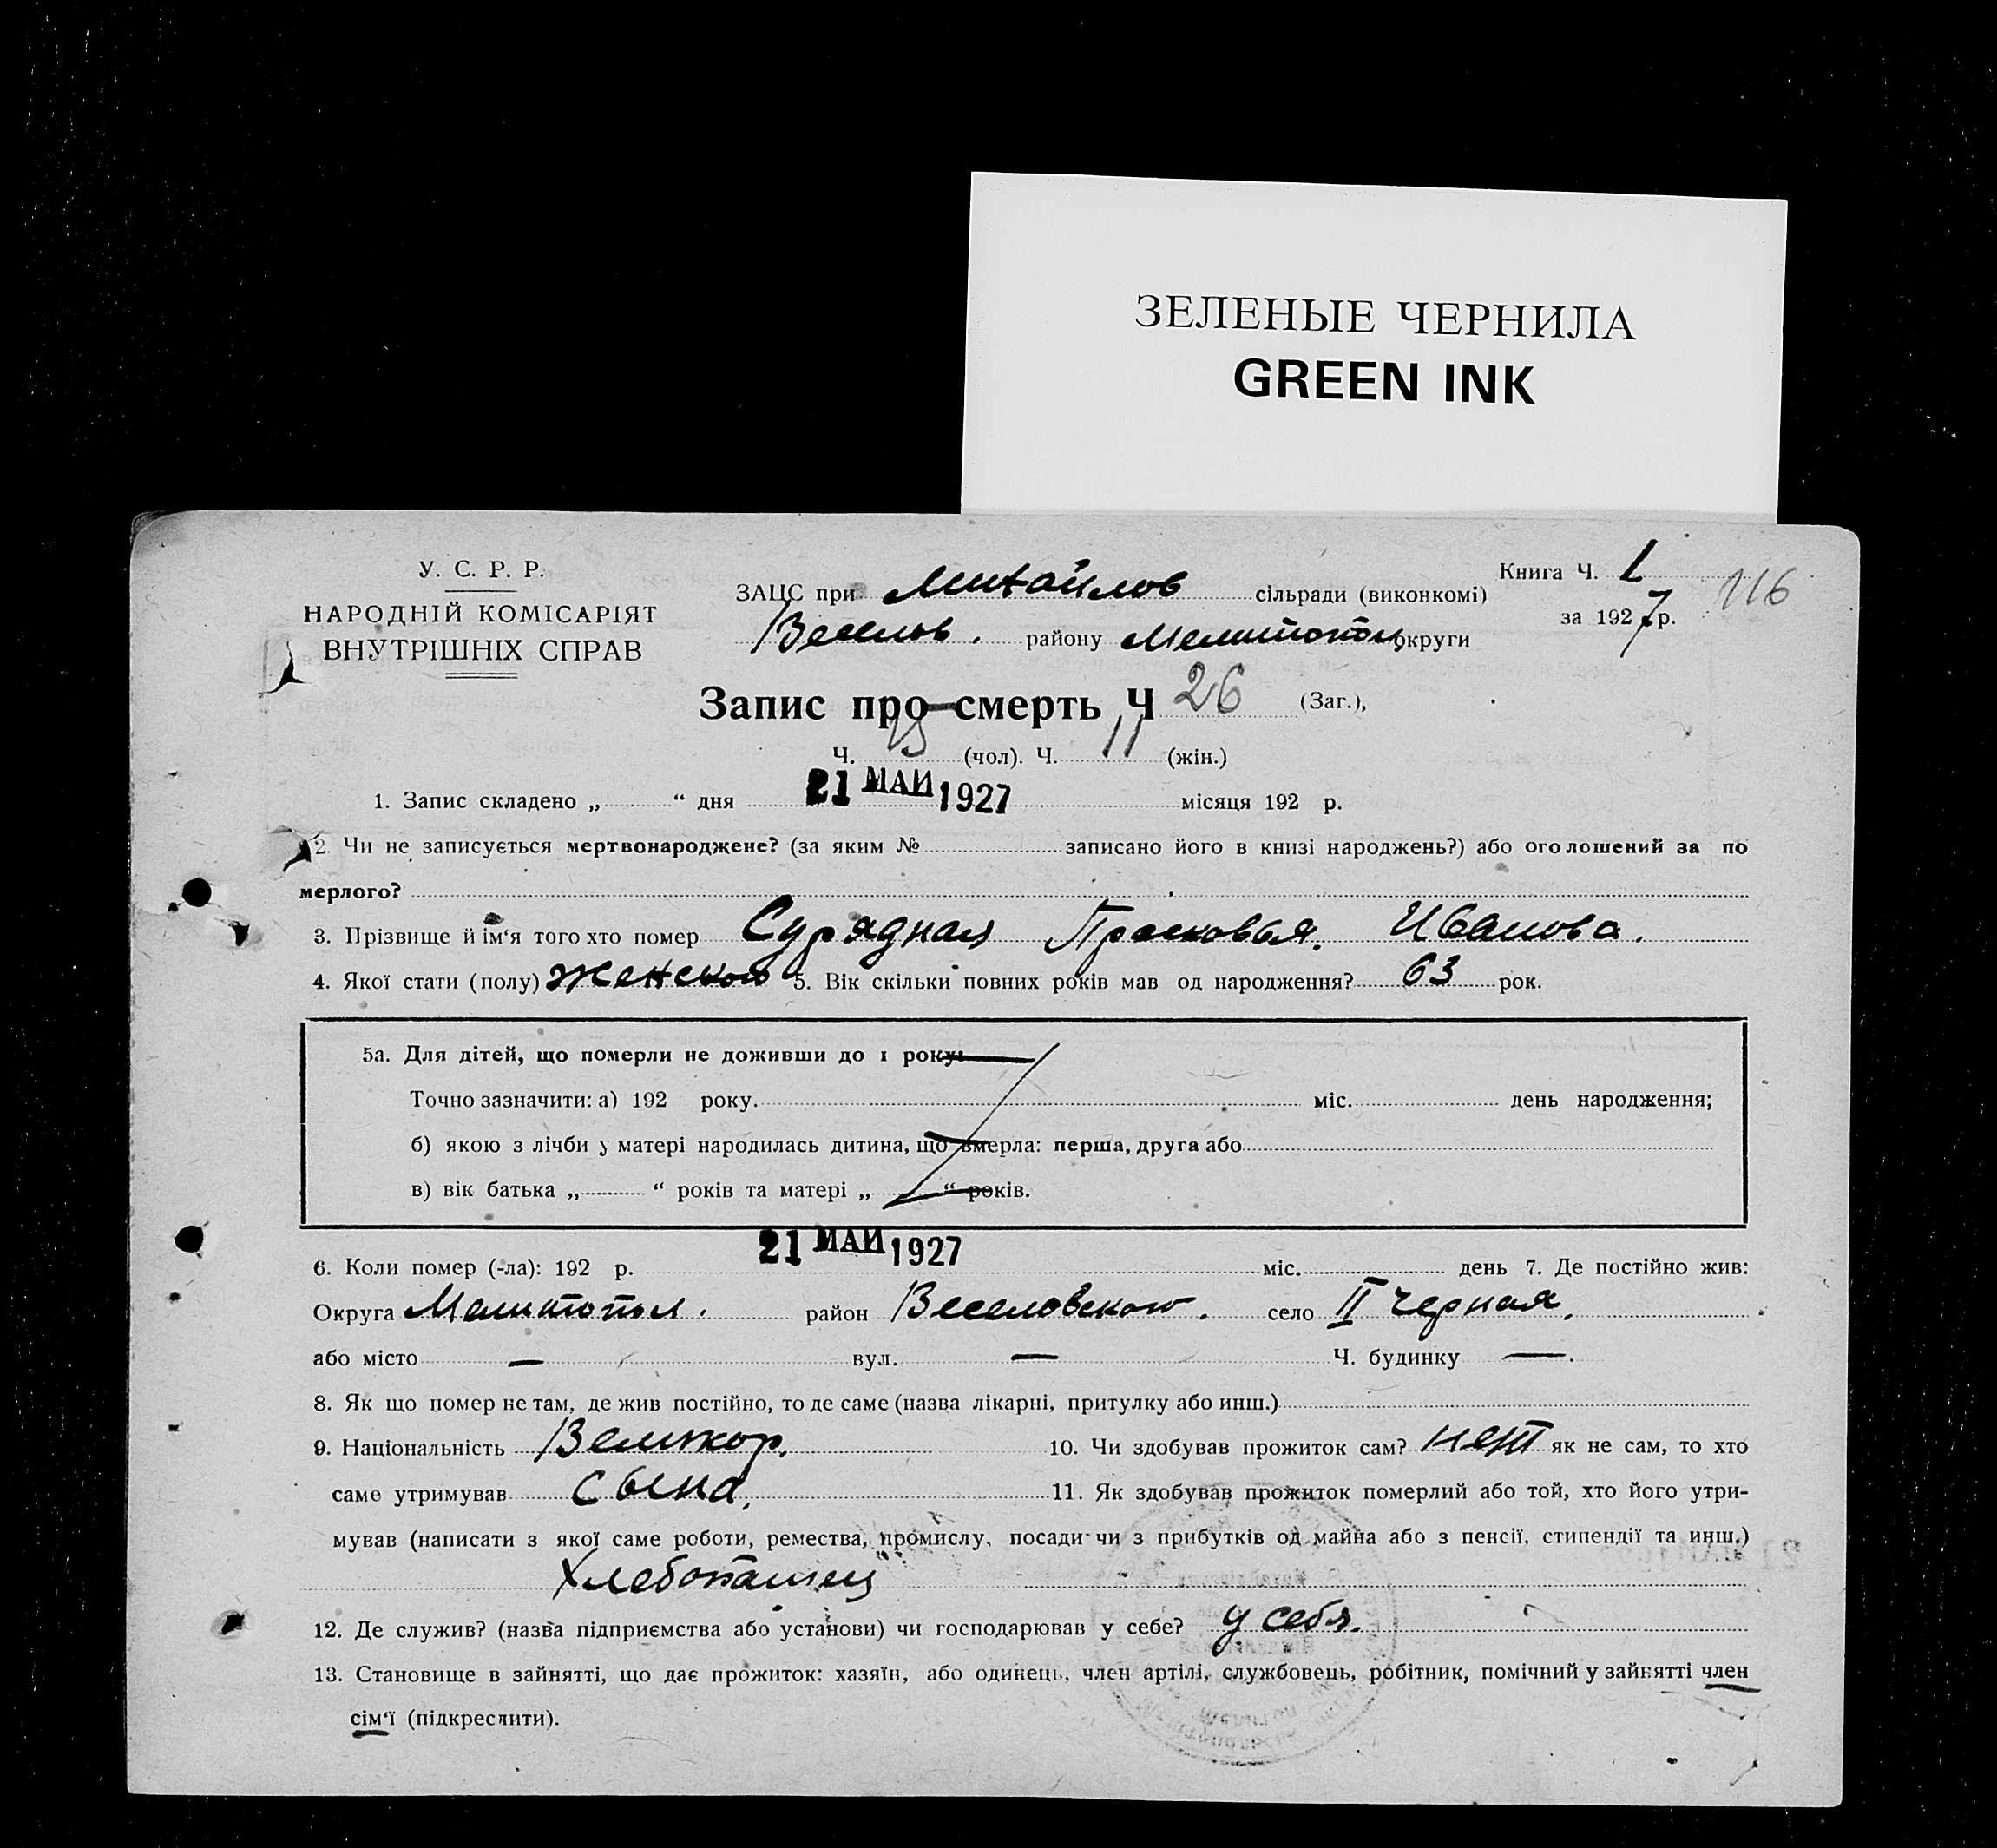 ЗЕЛЕНЫЕ ЧЕРНИЛА
GREEN INK
У. С. Р. Р.
НАРОДНІЙ КОМІСАРІЯТ
ВНУТРІШНІХ СПРАВ
ЗАЦС при Михайлов сільради (виконкомі)
Веселов. району Мелитопол округи
Книга Ч. 1
за 1927 р.
116
Запис про смерть Ч 26 (Заг.),
Ч. 15 (чол). Ч. 11 (жін.)
1. Запис складено „ “ дня 21 МАЙ 1927 місяця 192 р.
2. Чи не записується мертвонароджене? (за яким № записано його в книзі народжень?) або оголошений за по
мерлого?
3. Прізвище й ім‘я того хто помер Сурядная Прасковья. Иванова.
4. Якої стати (полу) женского 5. Вік скільки повних років мав од народження? 63 рок.
5а. Для дітей, що померли не доживши до 1 року:
Точно зазначити: а) 192 року. міс. день народження;
б) якою з лічби у матері народилась дитина, що вмерла: перша, друга або
в) вік батька „ “ років та матері „ “ років.
6. Коли помер (-ла): 192 р. 21 МАЙ 1927 міс. день 7. Де постійно жив:
Округа Мелитопол. район Веселовского. село II Черная.
або місто — вул. — Ч. будинку —.
8. Як що помер не там, де жив постійно, то де саме (назва лікарні, притулку або инш.)
9. Національність Великор. 10. Чи здобував прожиток сам? нет як не сам, то хто
саме утримував сына. 11. Як здобував прожиток померлий або той, хто його утри-
мував (написати з якої саме роботи, ремества, промислу, посади чи з прибутків од майна або з пенсії, стипендії та инш.)
Хлебопашец
12. Де служив? (назва підприємства або установи) чи господарював у себе? у себя.
13. Становище в зайнятті, що дає прожиток: хазяїн, або одинець, член артілі, службовець, робітник, помічний у зайнятті член
сім‘ї (підкреслити).